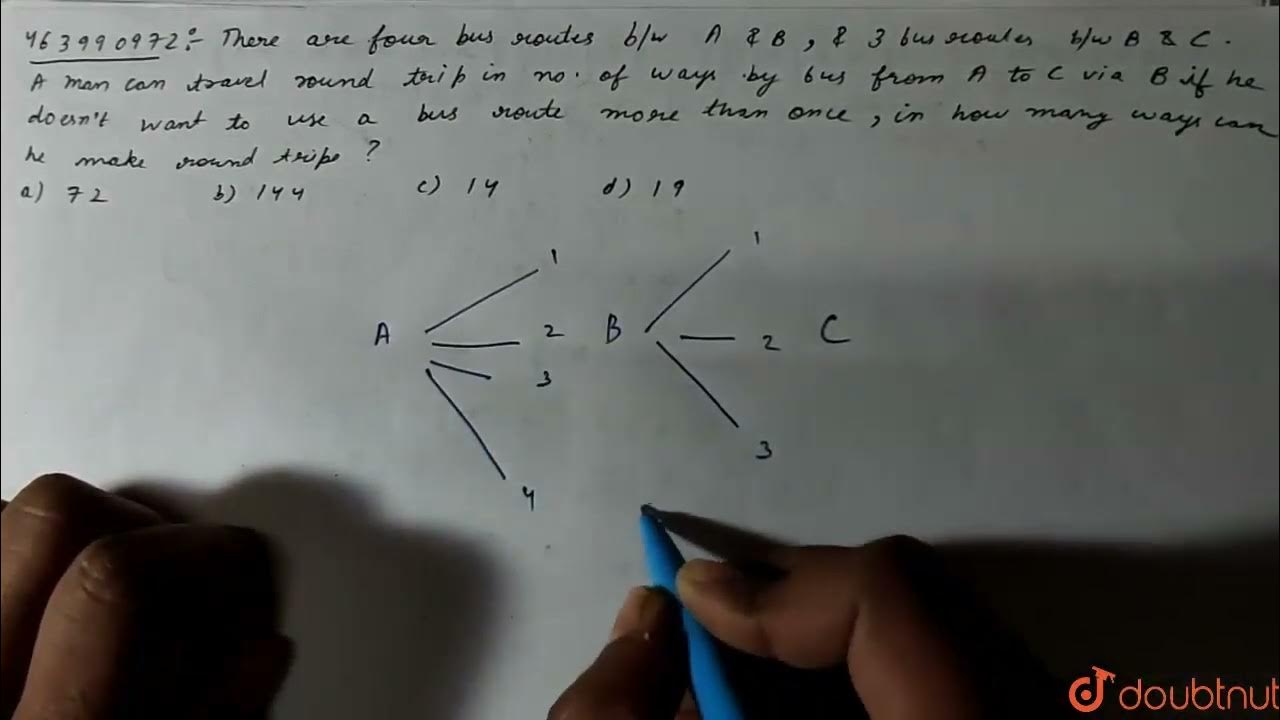 463990972:- There are four bus routes b/w A & B, & 3 bus routes b/w B & C.
A man can travel round trip in no. of ways by bus from A to C via B if he
doesn't want to use a bus route more than once, in how many ways can
he make round trips ?
a) 72 b) 144 c) 14 d) 19
1 1
A 2 B 2 C
3
3
4
doubtnut